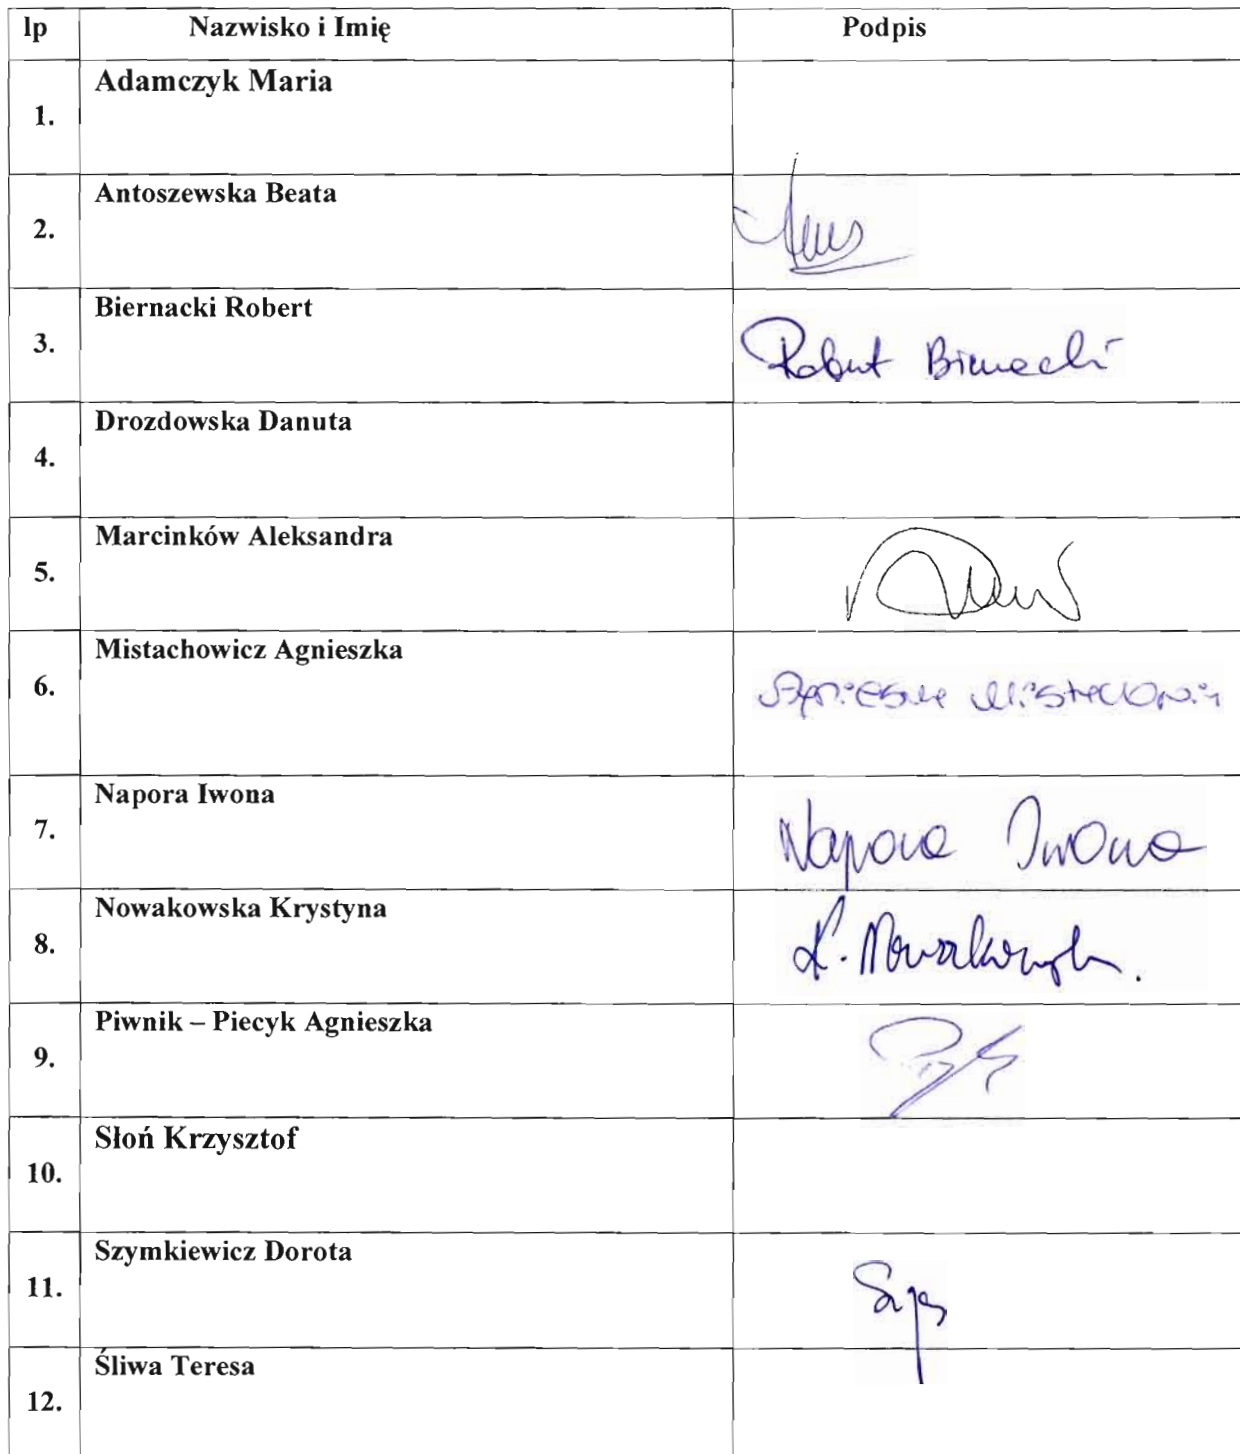 lp Nazwisko i Imię Podpis
1. Adamczyk Maria
2. Antoszewska Beata
3. Biernacki Robert Robert Biernacki
4. Drozdowska Danuta
5. Marcinków Aleksandra
6. Mistachowicz Agnieszka
7. Napora Iwona Napora Iwona
8. Nowakowska Krystyna K. Nowakowska
9. Piwnik – Piecyk Agnieszka
10. Słoń Krzysztof
11. Szymkiewicz Dorota
12. Śliwa Teresa